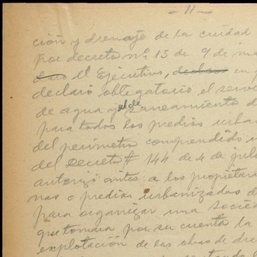 - 11 -
ción y drenage de la ciudad
por decreto nº. 13 de 9 de ma
el Ejecutivo, declaro en p
declaró obligatorio el serv
de agua y el de saneamiento d
para todos los predios urba
del perímetro comprendido e
del Decreto # 144 de 4 de
autorizó antes a los propietar
nas o predios urbanizados d
para organizar una socie
que tomara por su cuenta la
explotación de las obras de dre